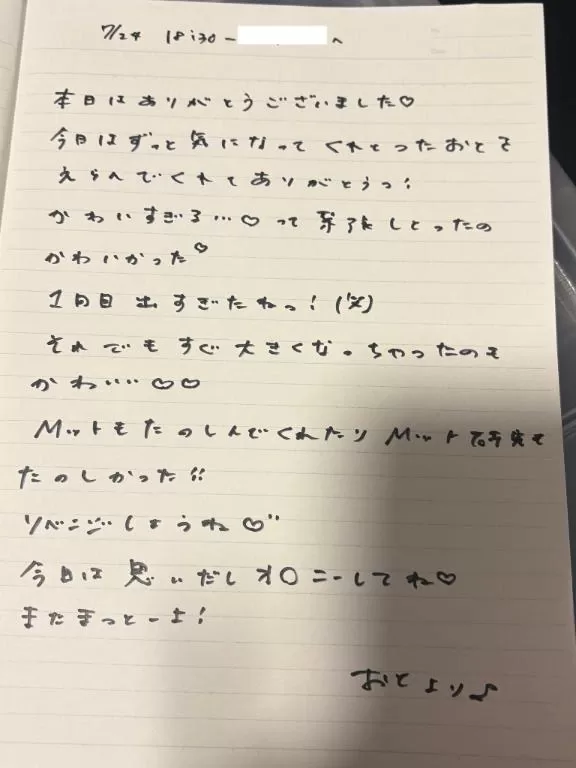 7/24 18:30- へ
本日はありがとうございました♡
今日はずっと気になってくれとったおとを
えらんでくれてありがとうっ!
かわいすぎる…♡って緊張しとったの
かわいかった♡
1回目出すぎたねっ!(笑)
それでもすぐ大きくなっちゃったのも
かわいい♡♡
Mットもたのしんでくれたり Mット研究も
たのしかった!!
リベンジしようね♡
今日は思いだしオ〇ニーしてね♡
またまっとーよ!
おとより♪